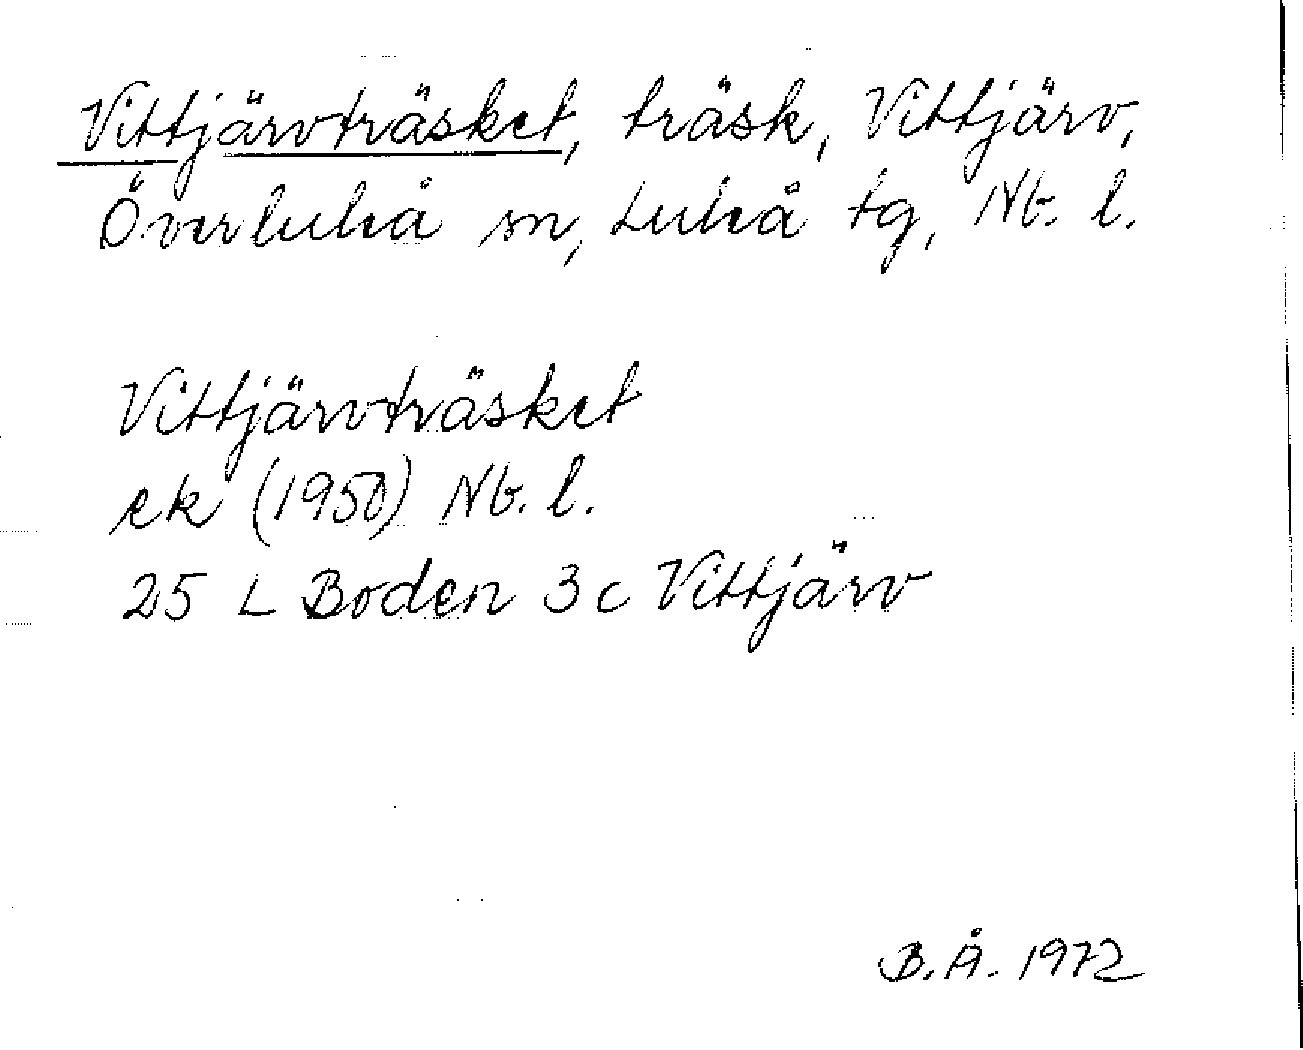 Vittjärvträsket, träsk, Vittjärv,
Överluleå sn, Luleå tg, Nb. l.
Vittjärvträsket
ek (1950) Nb. l.
25 L Boden 3c Vittjärv
B.Å. 1972